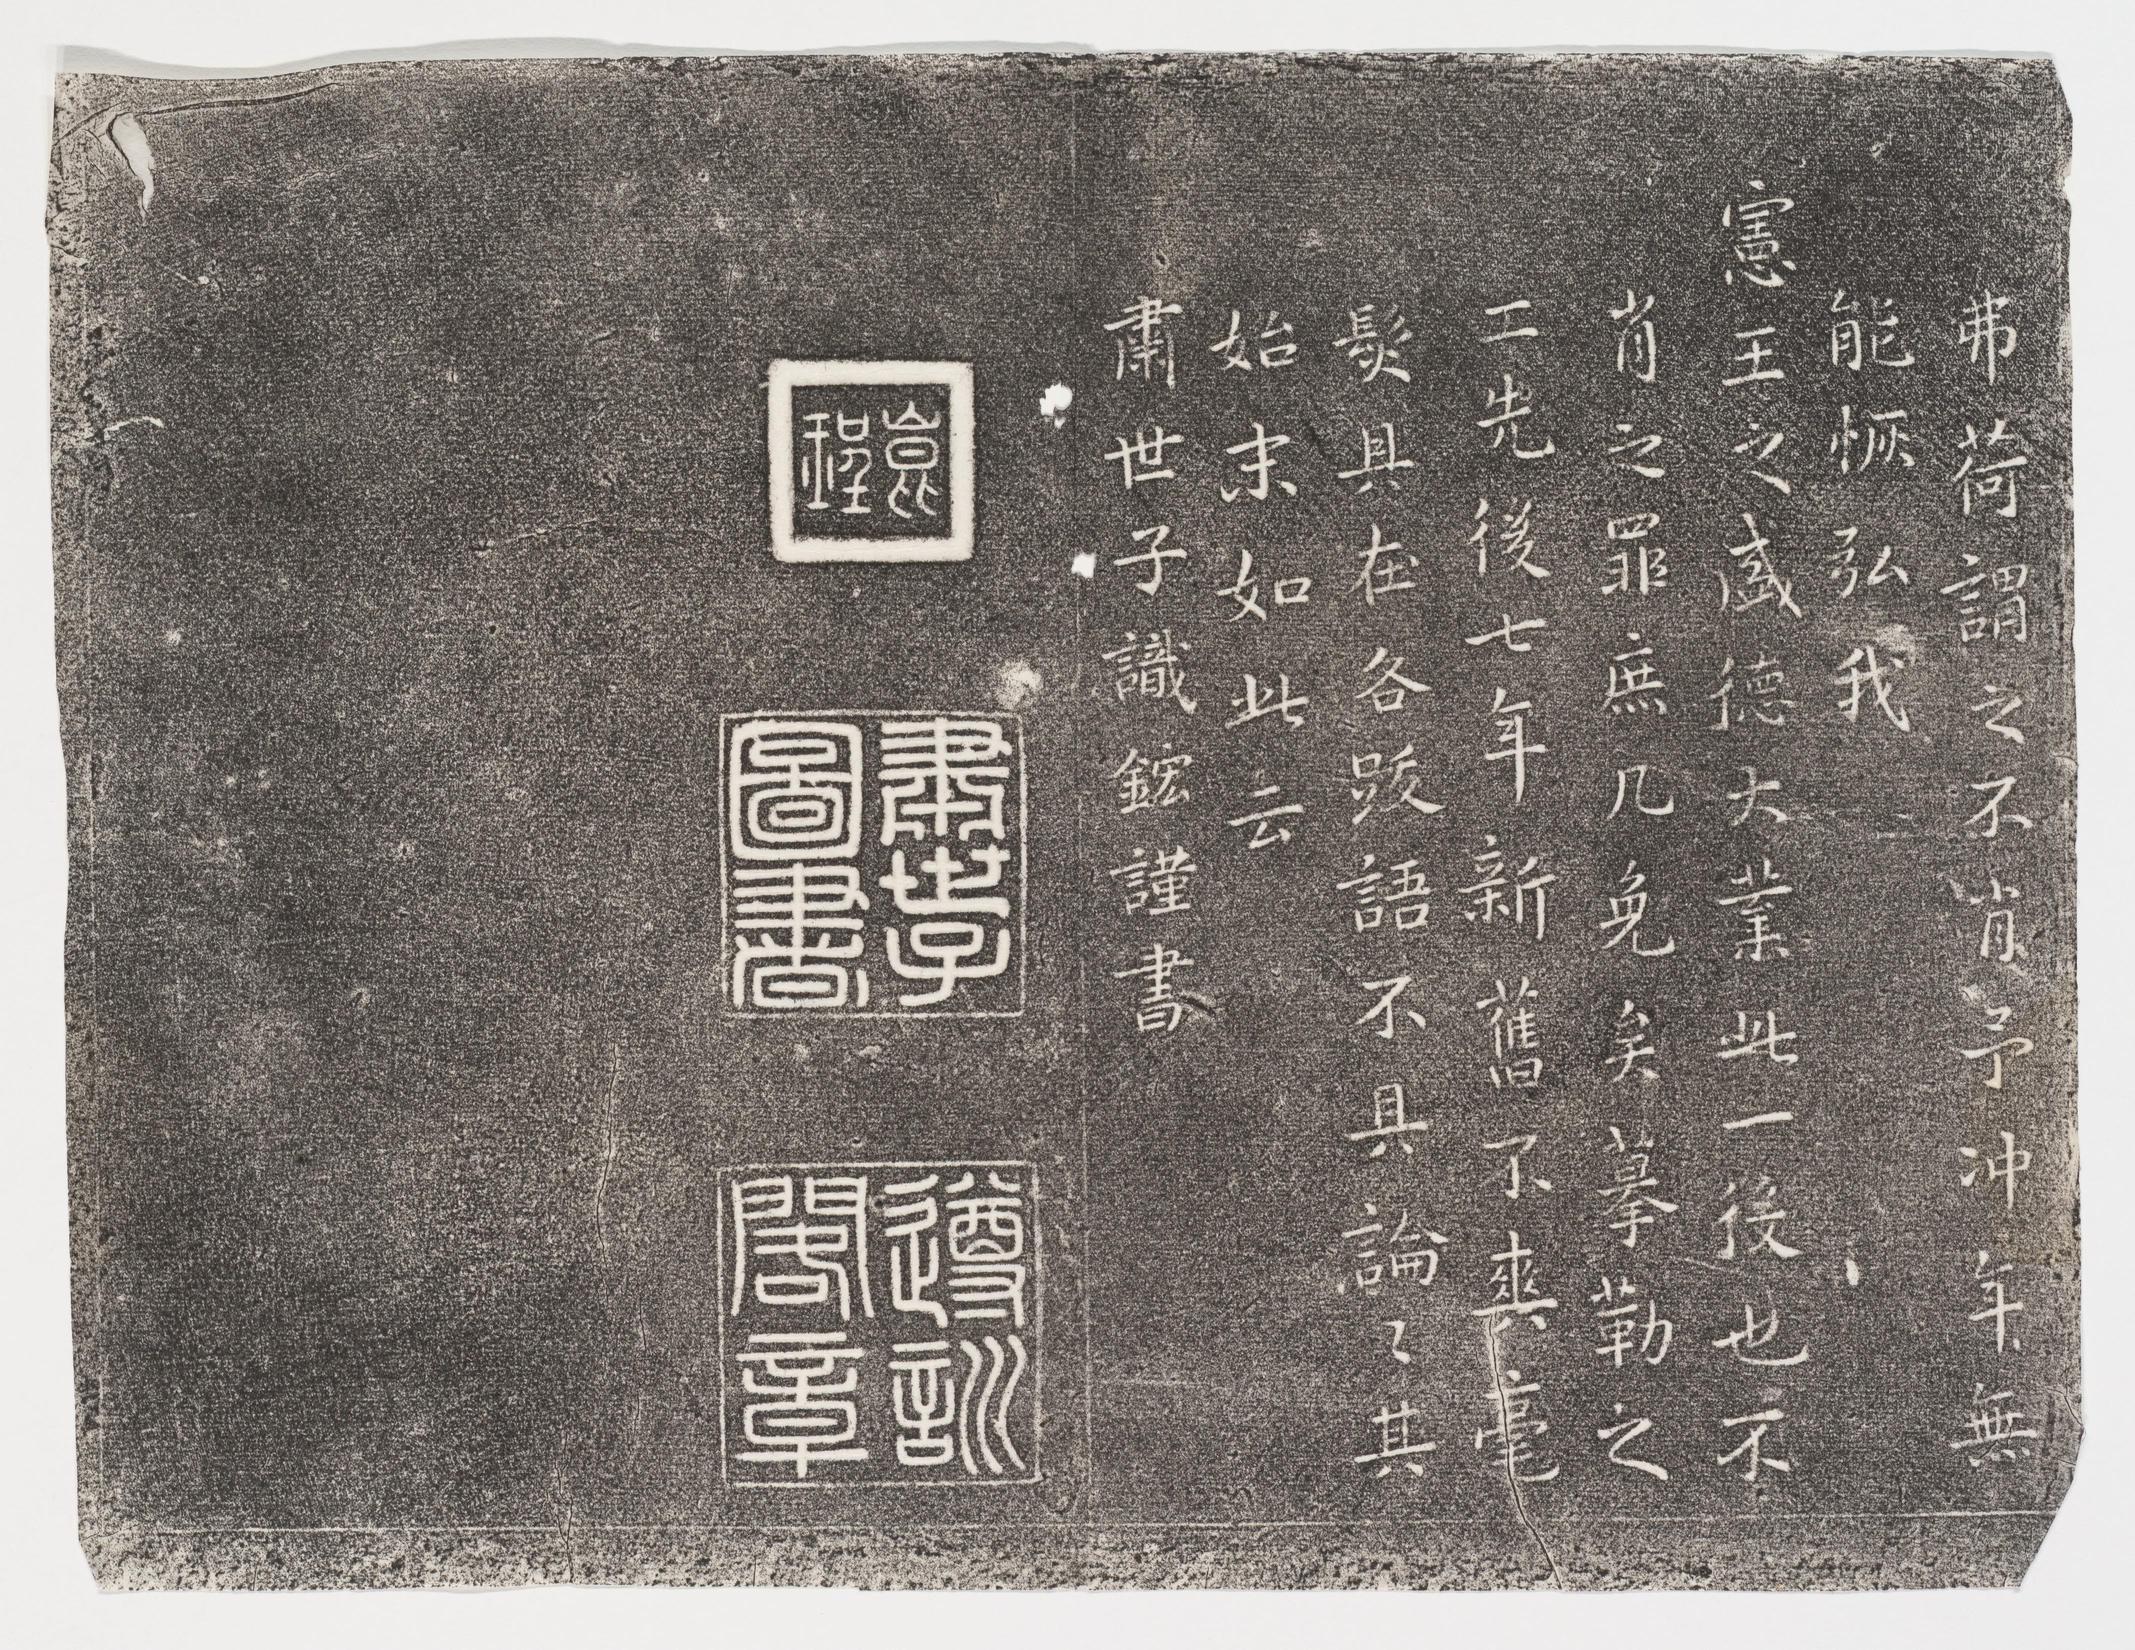 弗荷謂之不肖予冲年無
能恢弘我
憲王之盛德大業此一役也不
肖之罪庶几免矣摹勒之
工先後七年新舊不爽毫
髮具在各跋語不具論〻其
始末如此云
肅世子識鋐謹書
肅世子圖書
遵訓閣章